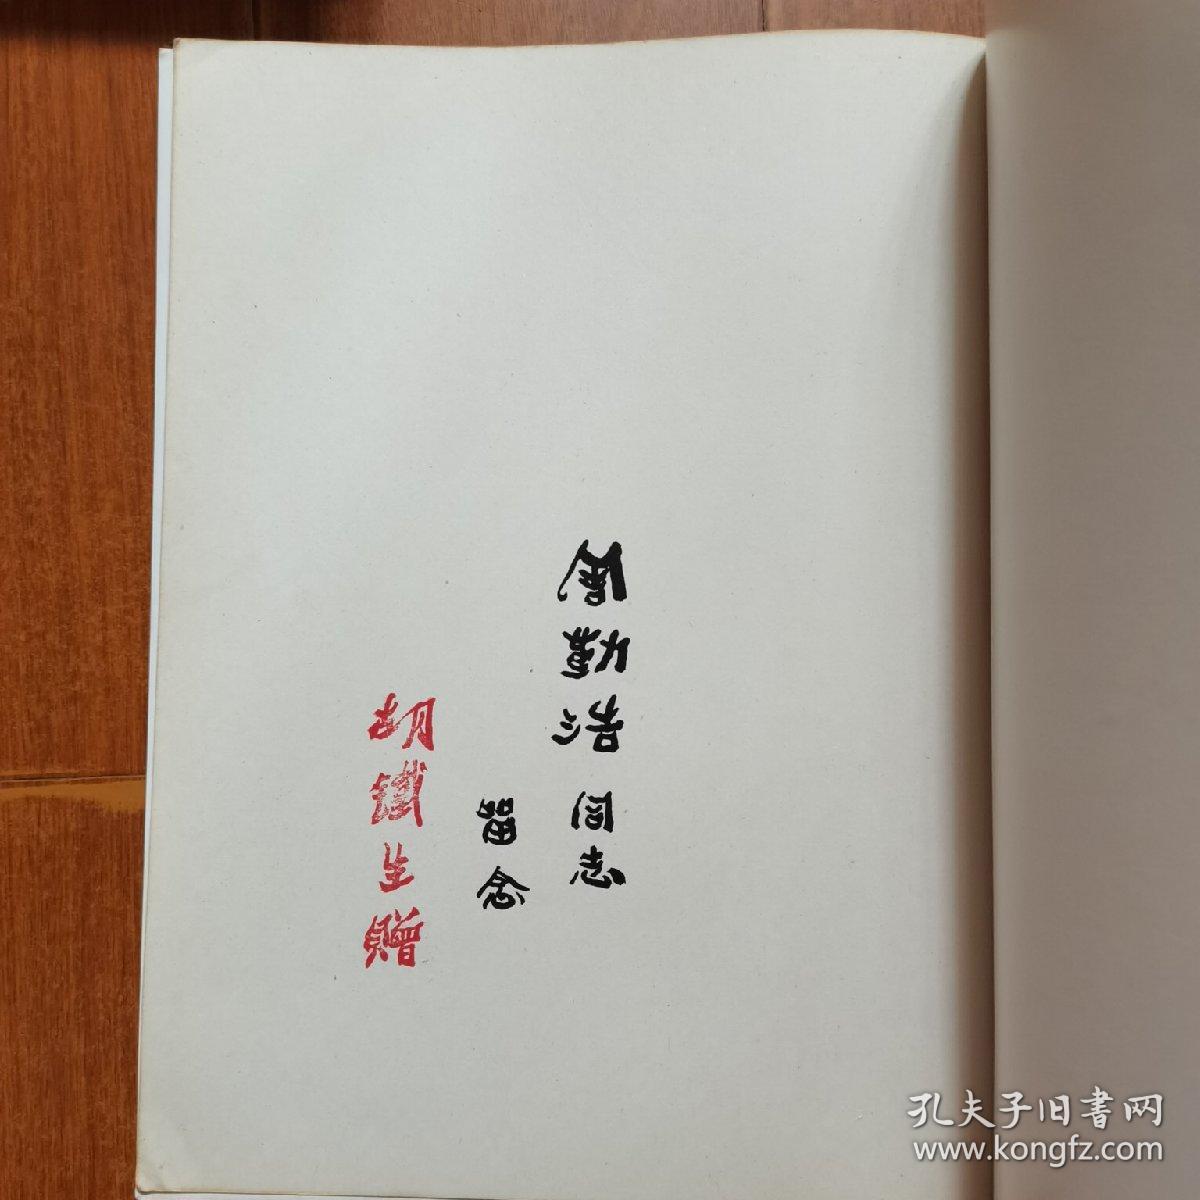 勤浩同志
留念
胡鐵生贈
孔夫子旧書网
www.kongfz.com